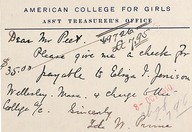 AMERICAN COLLEGE FOR GIRLS
ASS'T TREASURER'S OFFICE
Dear Mr Peet.
Please give me a check for
$35.00 payable to Eliza F. Jenison
Wellesley, Mass. & charge to this
College a/c.
Sincerely
W. Prime